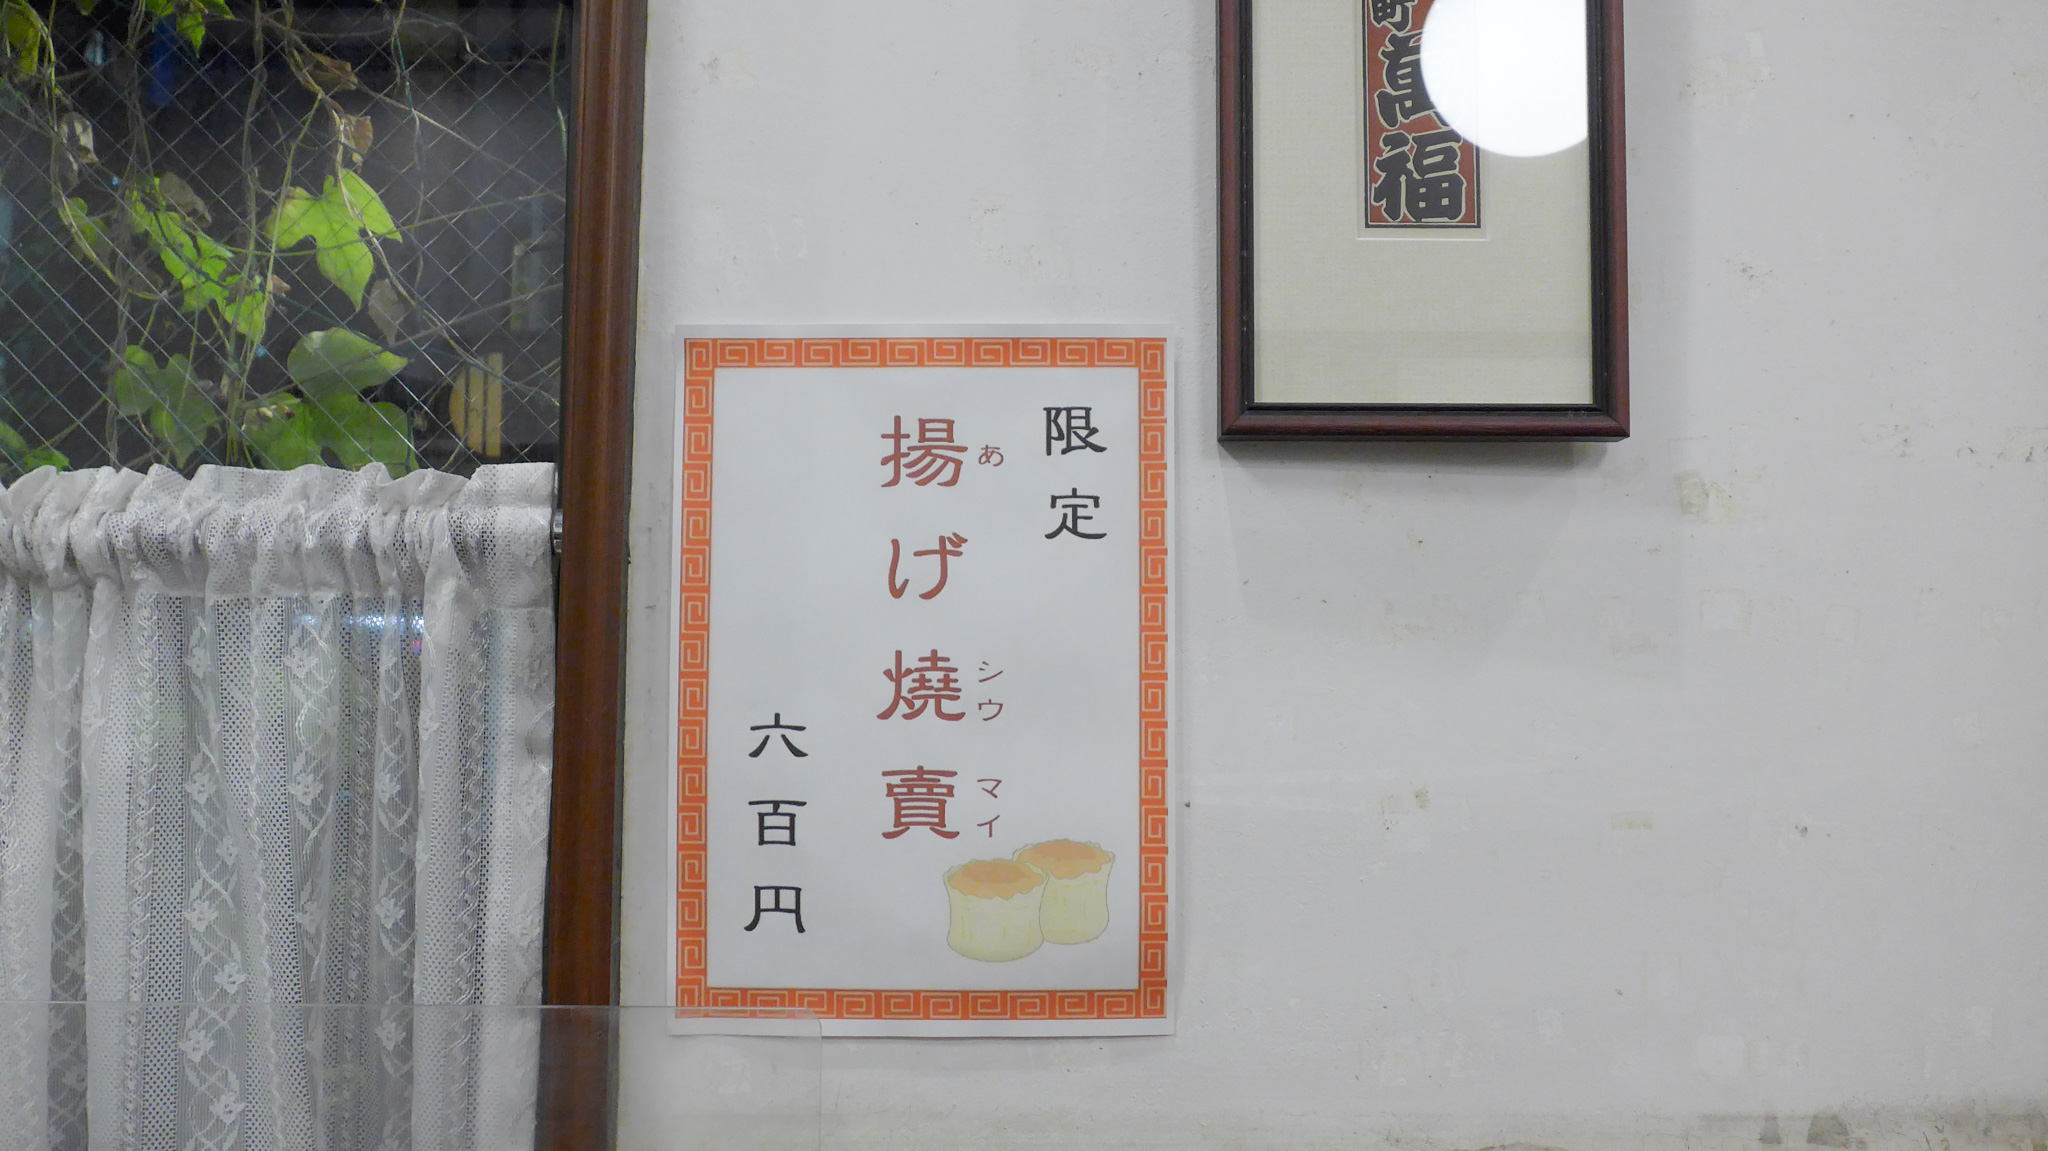 限定
揚げ燒賣
あ
シウ
マイ
六百円
萬福